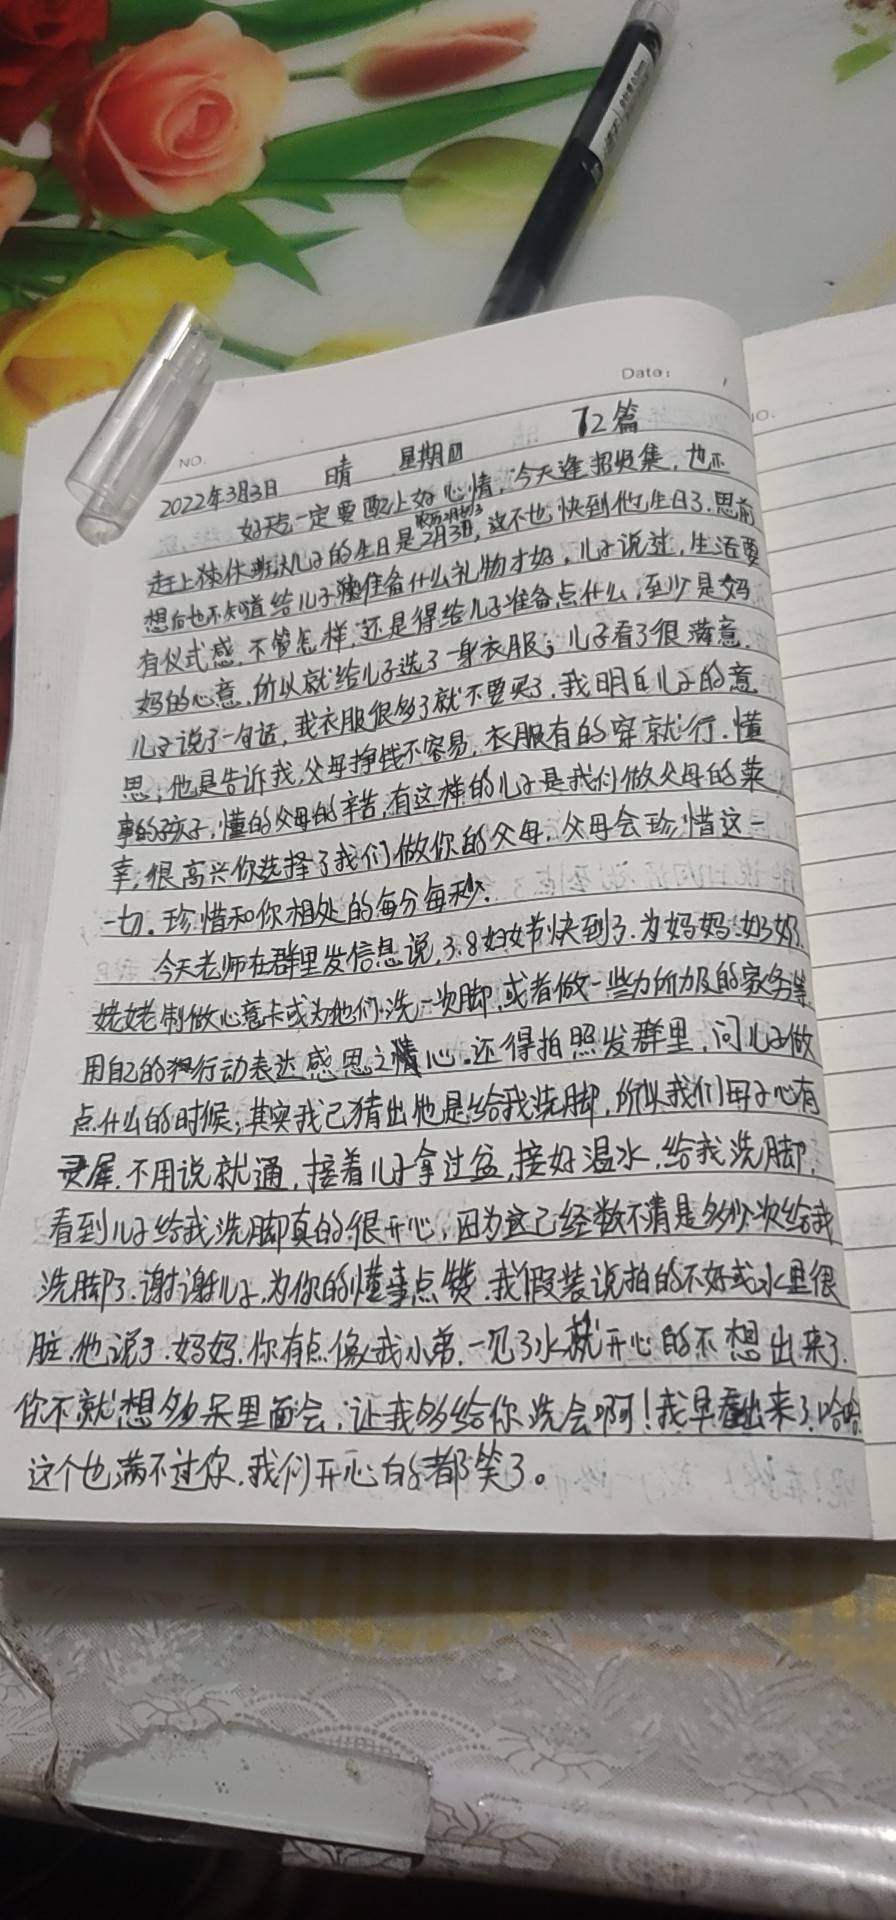 Date:
NO.
NO.
72篇
2022年3月3日 晴 星期四
好天气一定要配上好心情,今天逢招贤集,也正
赶上姨休班,儿子的生日是2月3日,这不也快到他生日了.思前
想后也不知道给儿子准备什么礼物才好,儿子说过,生活要
有仪式感.不管怎样,还是得给儿子准备点什么,至少是妈
妈的心意,所以就给儿子选了一身衣服;儿子看了很满意.
儿子说了一句话,我衣服很多了就不要买了.我明白儿子的意
思,他是告诉我,父母挣钱不容易,衣服有的穿就行.懂
事的孩子,懂的父母的辛苦,有这样的儿子是我们做父母的荣
幸,很高兴你选择了我们做你的父母,父母会珍惜这一
一切。珍惜和你相处的每分每秒.
今天老师在群里发信息说,3.8妇女节快到了.为妈妈.奶奶.
姥姥制做心意卡或为他们洗一次脚,或者做一些力所力及的家务等
用自己的行动表达感恩之情心.还得拍照发群里,问儿子做
点什么的时候,其实我已猜出他是给我洗脚,所以我们母子心有
灵犀.不用说就通,接着儿子拿过盆,接好温水,给我洗脚,
看到儿子给我洗脚真的很开心,因为这已经数不清是多少次给我
洗脚了.谢谢儿子,为你的懂事点赞.我假装说拍的不好或水里很
脏.他说了.妈妈.你有点像我小弟.一见了水就开心的不想出来了.
你不就想多呆里面会,让我多给你洗会啊!我早看出来了.哈哈
这个也满不过你.我们开心的都笑了。